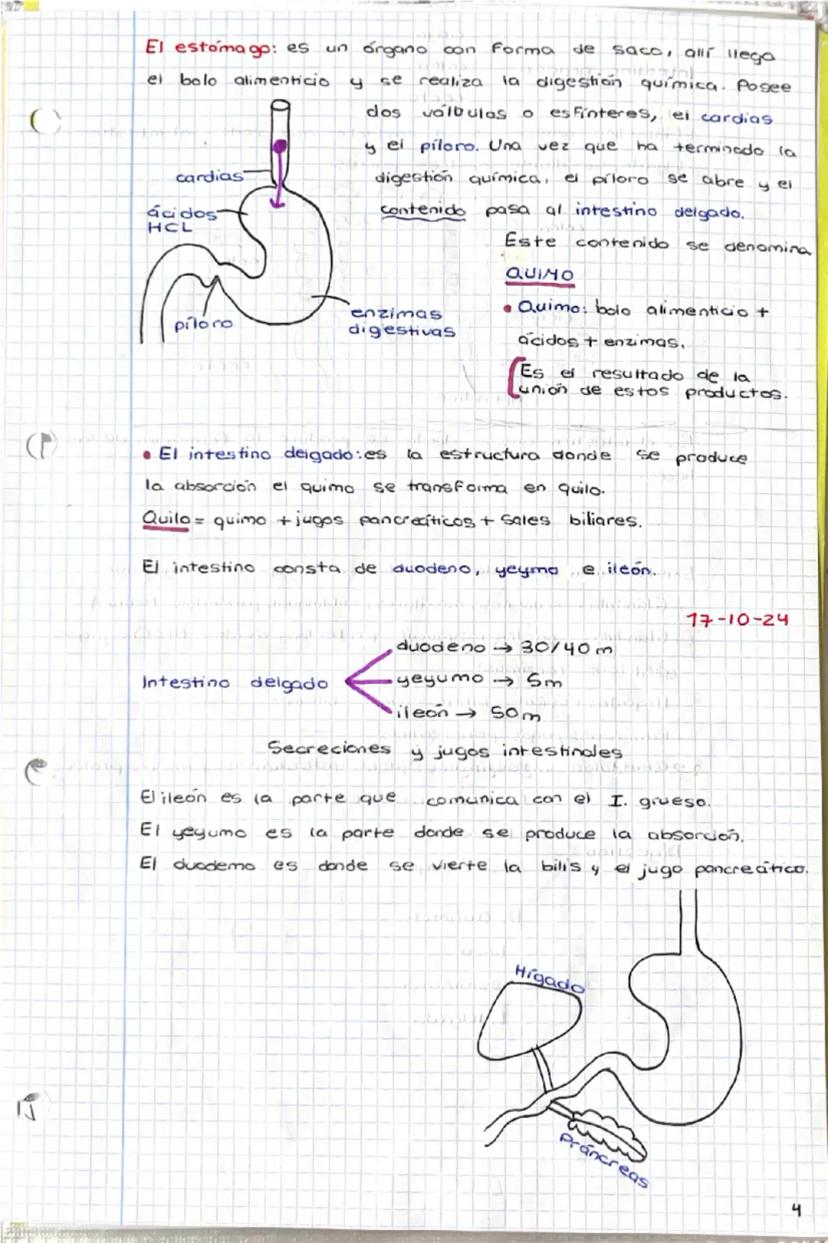 El estómago: es un órgano con forma de saco, allí llega
el bolo alimenticio y se realiza la digestión química. Posee
dos válbulas o esfínteres, el cardias
y el píloro. Una vez que ha terminado la
digestión química, el píloro se abre y el
contenido pasa al intestino delgado.
Este contenido se denomina
QUIMO
• Quimo: bolo alimenticio +
ácidos + enzimas.
Es el resultado de la
unión de estos productos.
cardias
ácidos
HCL
píloro
enzimas
digestivas
• El intestino delgado: es la estructura donde se produce
la absorción el quimo se transforma en quilo.
Quilo = quimo + jugos pancreáticos + sales biliares.
El intestino consta de duodeno, yeymo e ileón.
17-10-24
Intestino delgado
duodeno → 30/40 m
yeyumo → 5m
ileón → 50m
Secreciones y jugos intestinales
El ileón es la parte que comunica con el I. grueso.
El yeyumo es la parte donde se produce la absorción.
El duodemo es donde se vierte la bilis y el jugo pancreático.
Hígado
Práncreas
4